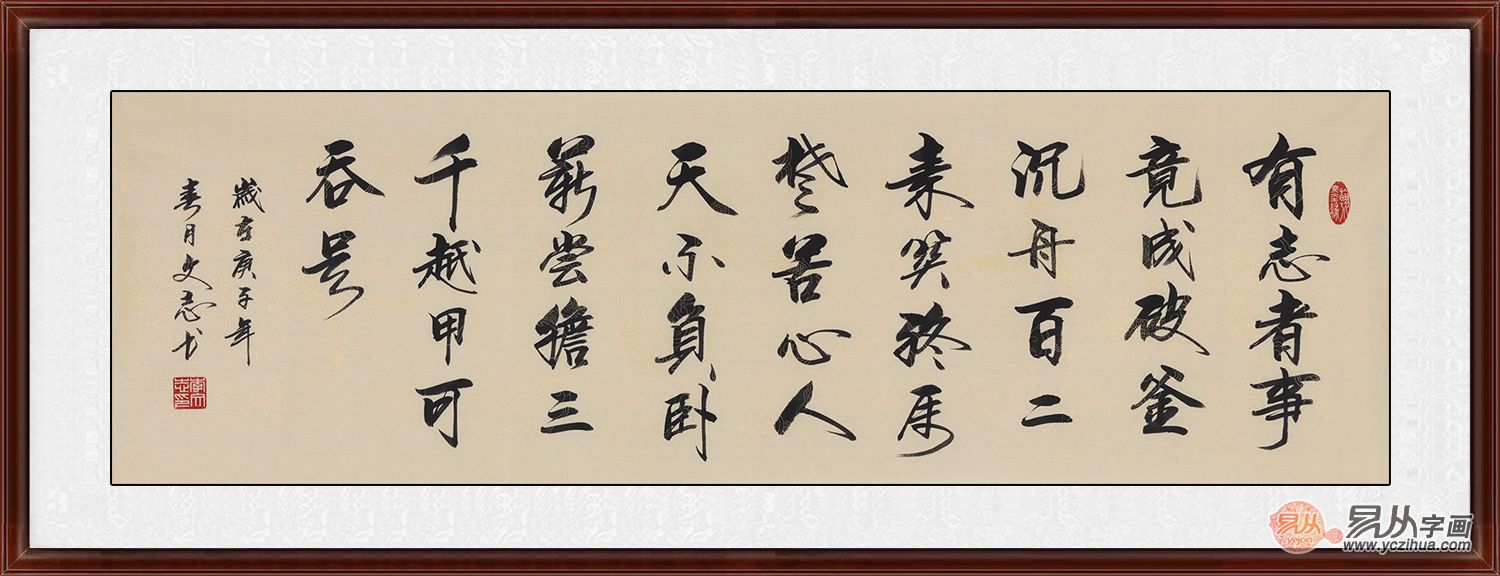 有志者事
竟成破釜
沉舟百二
秦关终属
楚苦心人
天不負卧
薪尝膽三
千越甲可
吞吴
歲在庚子年
春月文志书
李文志印
易从
易从字画
www.yczihua.com